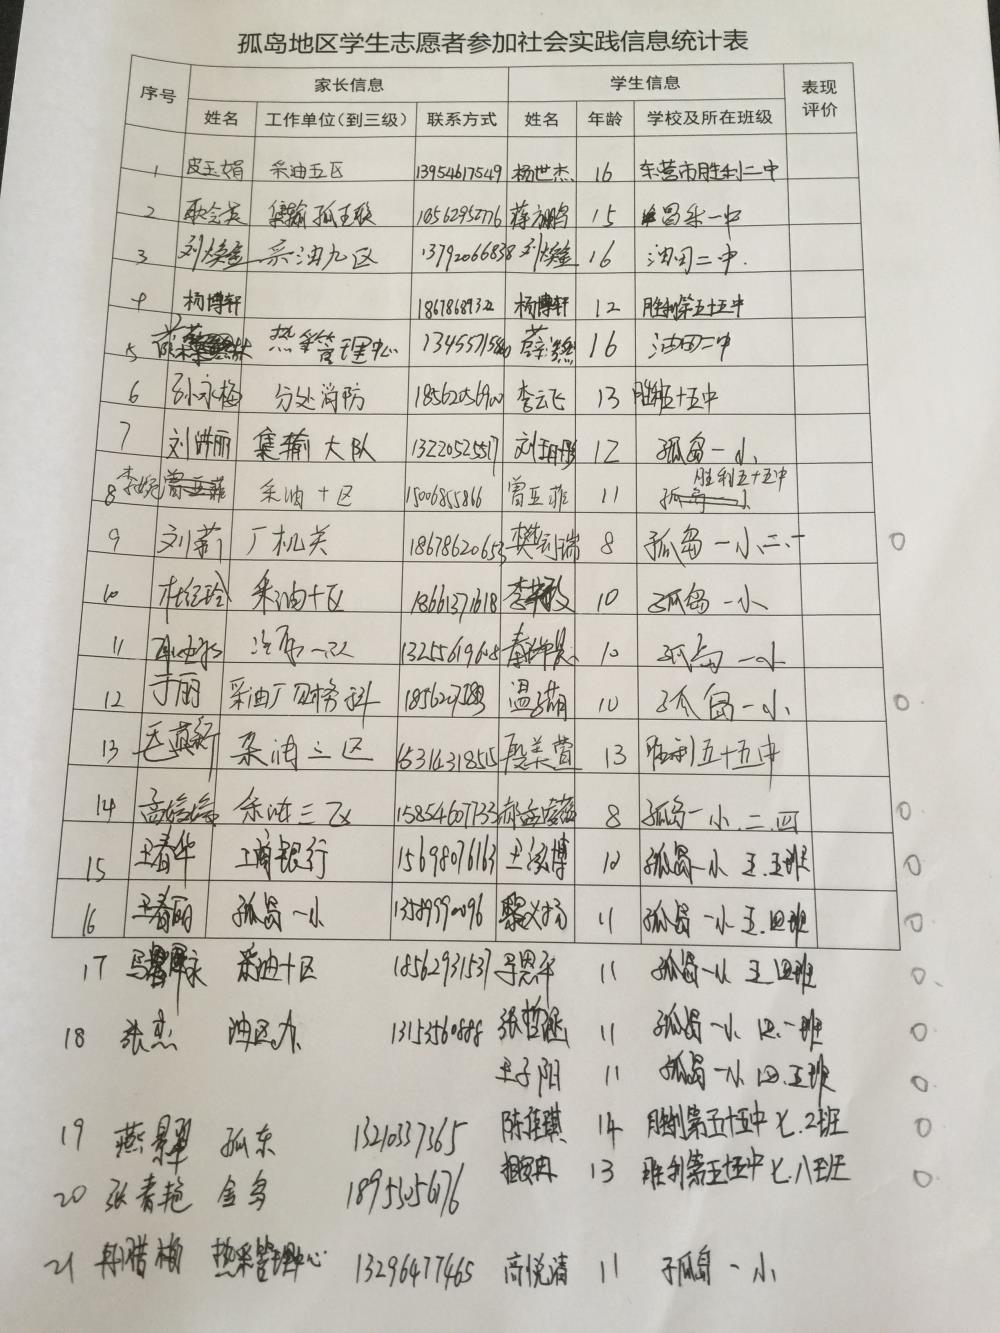 孤岛地区学生志愿者参加社会实践信息统计表
序号 家长信息 学生信息 表现评价
姓名 工作单位(到三级) 联系方式 姓名 年龄 学校及所在班级
1 皮玉娟 采油五区 13954617549 杨世杰 16 东营市胜利二中
2 集输孤王联 18562952776 蒋方鹏 15 昌乐一中
3 刘焕金 采油九区 13792066838 刘 16 油田二中.
4 杨博轩 1867868932 杨博轩 12 胜利第五十五中
5 热采管理中心 薛 16 油田二中
6 孙永梅 分处消防 18562056900 李云飞 13 胜利五十五中
7 刘洪丽 集输大队 13220525517 刘 12 孤岛一小
8 李婉 采油十区 15006855866 曾亚菲 11 胜利五十五中
9 刘莉 厂机关 18678620653 樊瑞 8 孤岛一小.二.一
10 杜红玲 采油十区 18661371618 李 10 孤岛一小
11 13255619608 秦 10 孤岛一小
12 于丽 采油厂财务科 温 10 孤岛一小
13 毛燕新 采油三区 15314318515 殷美萱 13 胜利五十五中
14 孟婷婷 采油三区 15854607733 郝孟 8 孤岛一小.二.四
15 王春华 工商银行 15698076163 王泓博 10 孤岛一小 五.五班
16 王春丽 孤岛一小 13589990096 綦义扬 11 孤岛一小 五.四班
17 马 采油十区 18562931537 马恩平 11 孤岛一小 五.四班
18 张杰 油区办 13153560888 张哲 11 孤岛一小 四.一班
王子阳 11 孤岛一小 四.五班
19 燕翠 孤东 13210337365 陈佳琪 14 胜利第五十五中 七.2班
20 张青艳 金岛 18955205676 13 胜利第五十五中 七.八班
21 腊梅 热采管理中心 13296477465 高悦清 11 孤岛一小